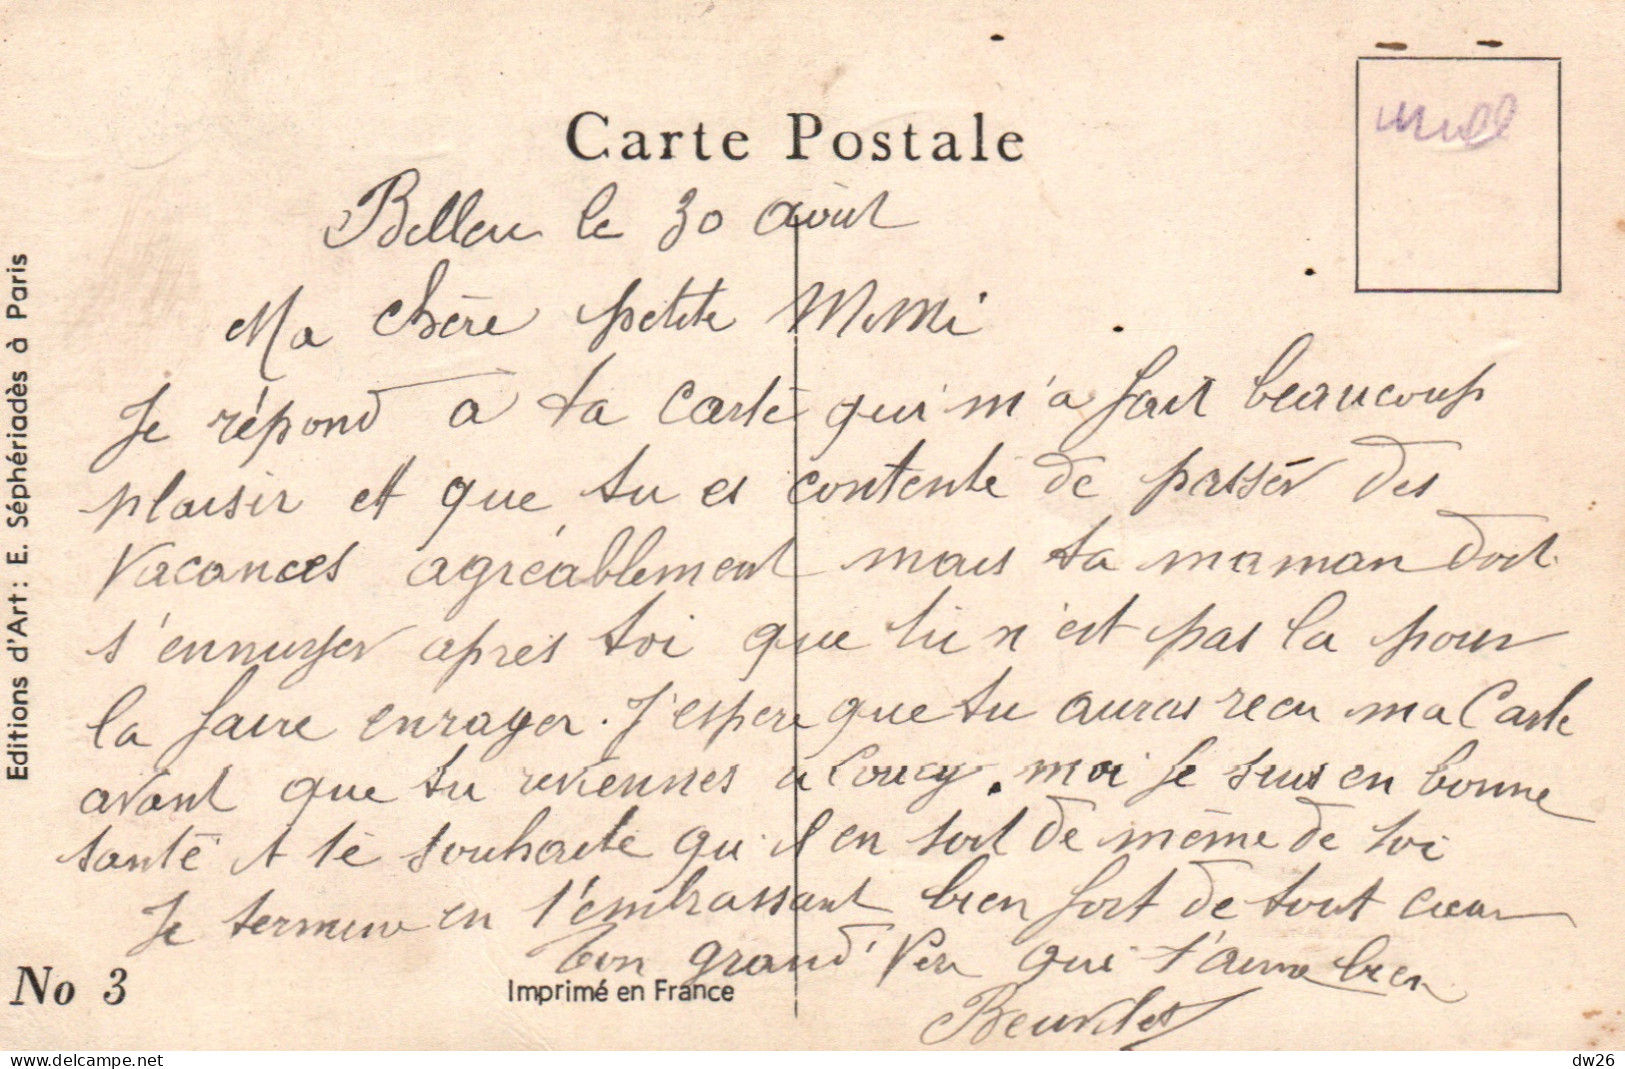 Carte Postale
Belleu le 30 août
Ma chère petite Mimi
Je répond à ta carte qui m'a fait beaucoup
plaisir et que tu es contente de passer des
vacances agréablement mais ta maman doit
s'ennuyer après toi que tu n'est pas la pour
la faire enrager. J'espere que tu auras recu ma Carte
avant que tu reviennes a Coucy. moi je suis en bonne
santé et te souhaite qu'il en soit de même de toi
Je termine en t'embrassant bien fort de tout cœur
Ton grand' Père qui t'aime bien
No 3
Imprimé en France
Editions d'Art: E. Séphériadès à Paris
dw26